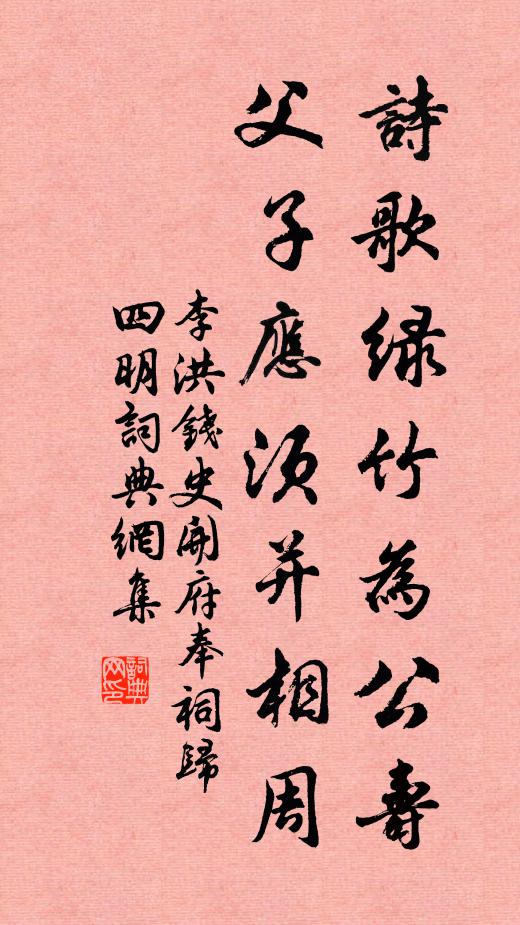 詩歌緑竹為公壽
父子應須并相周
李洪錢史開府奉祠歸
四明詞典網集
詞典網印